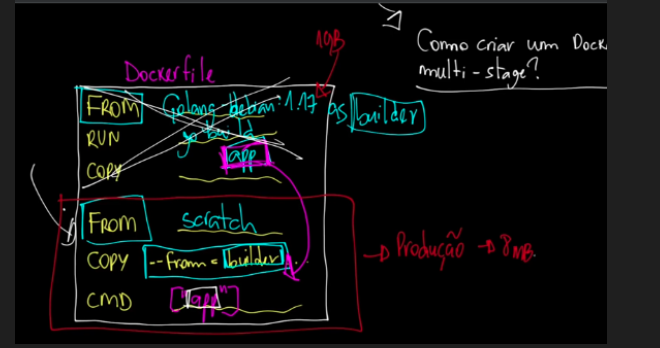 1GB
Como criar um Dock
multi-stage?
Dockerfile
FROM Golang-debian:1.17 as builder
RUN go build
app
COPY
FROM scratch
COPY --from=builder . .
Produção → 8MB.
CMD ["app"]